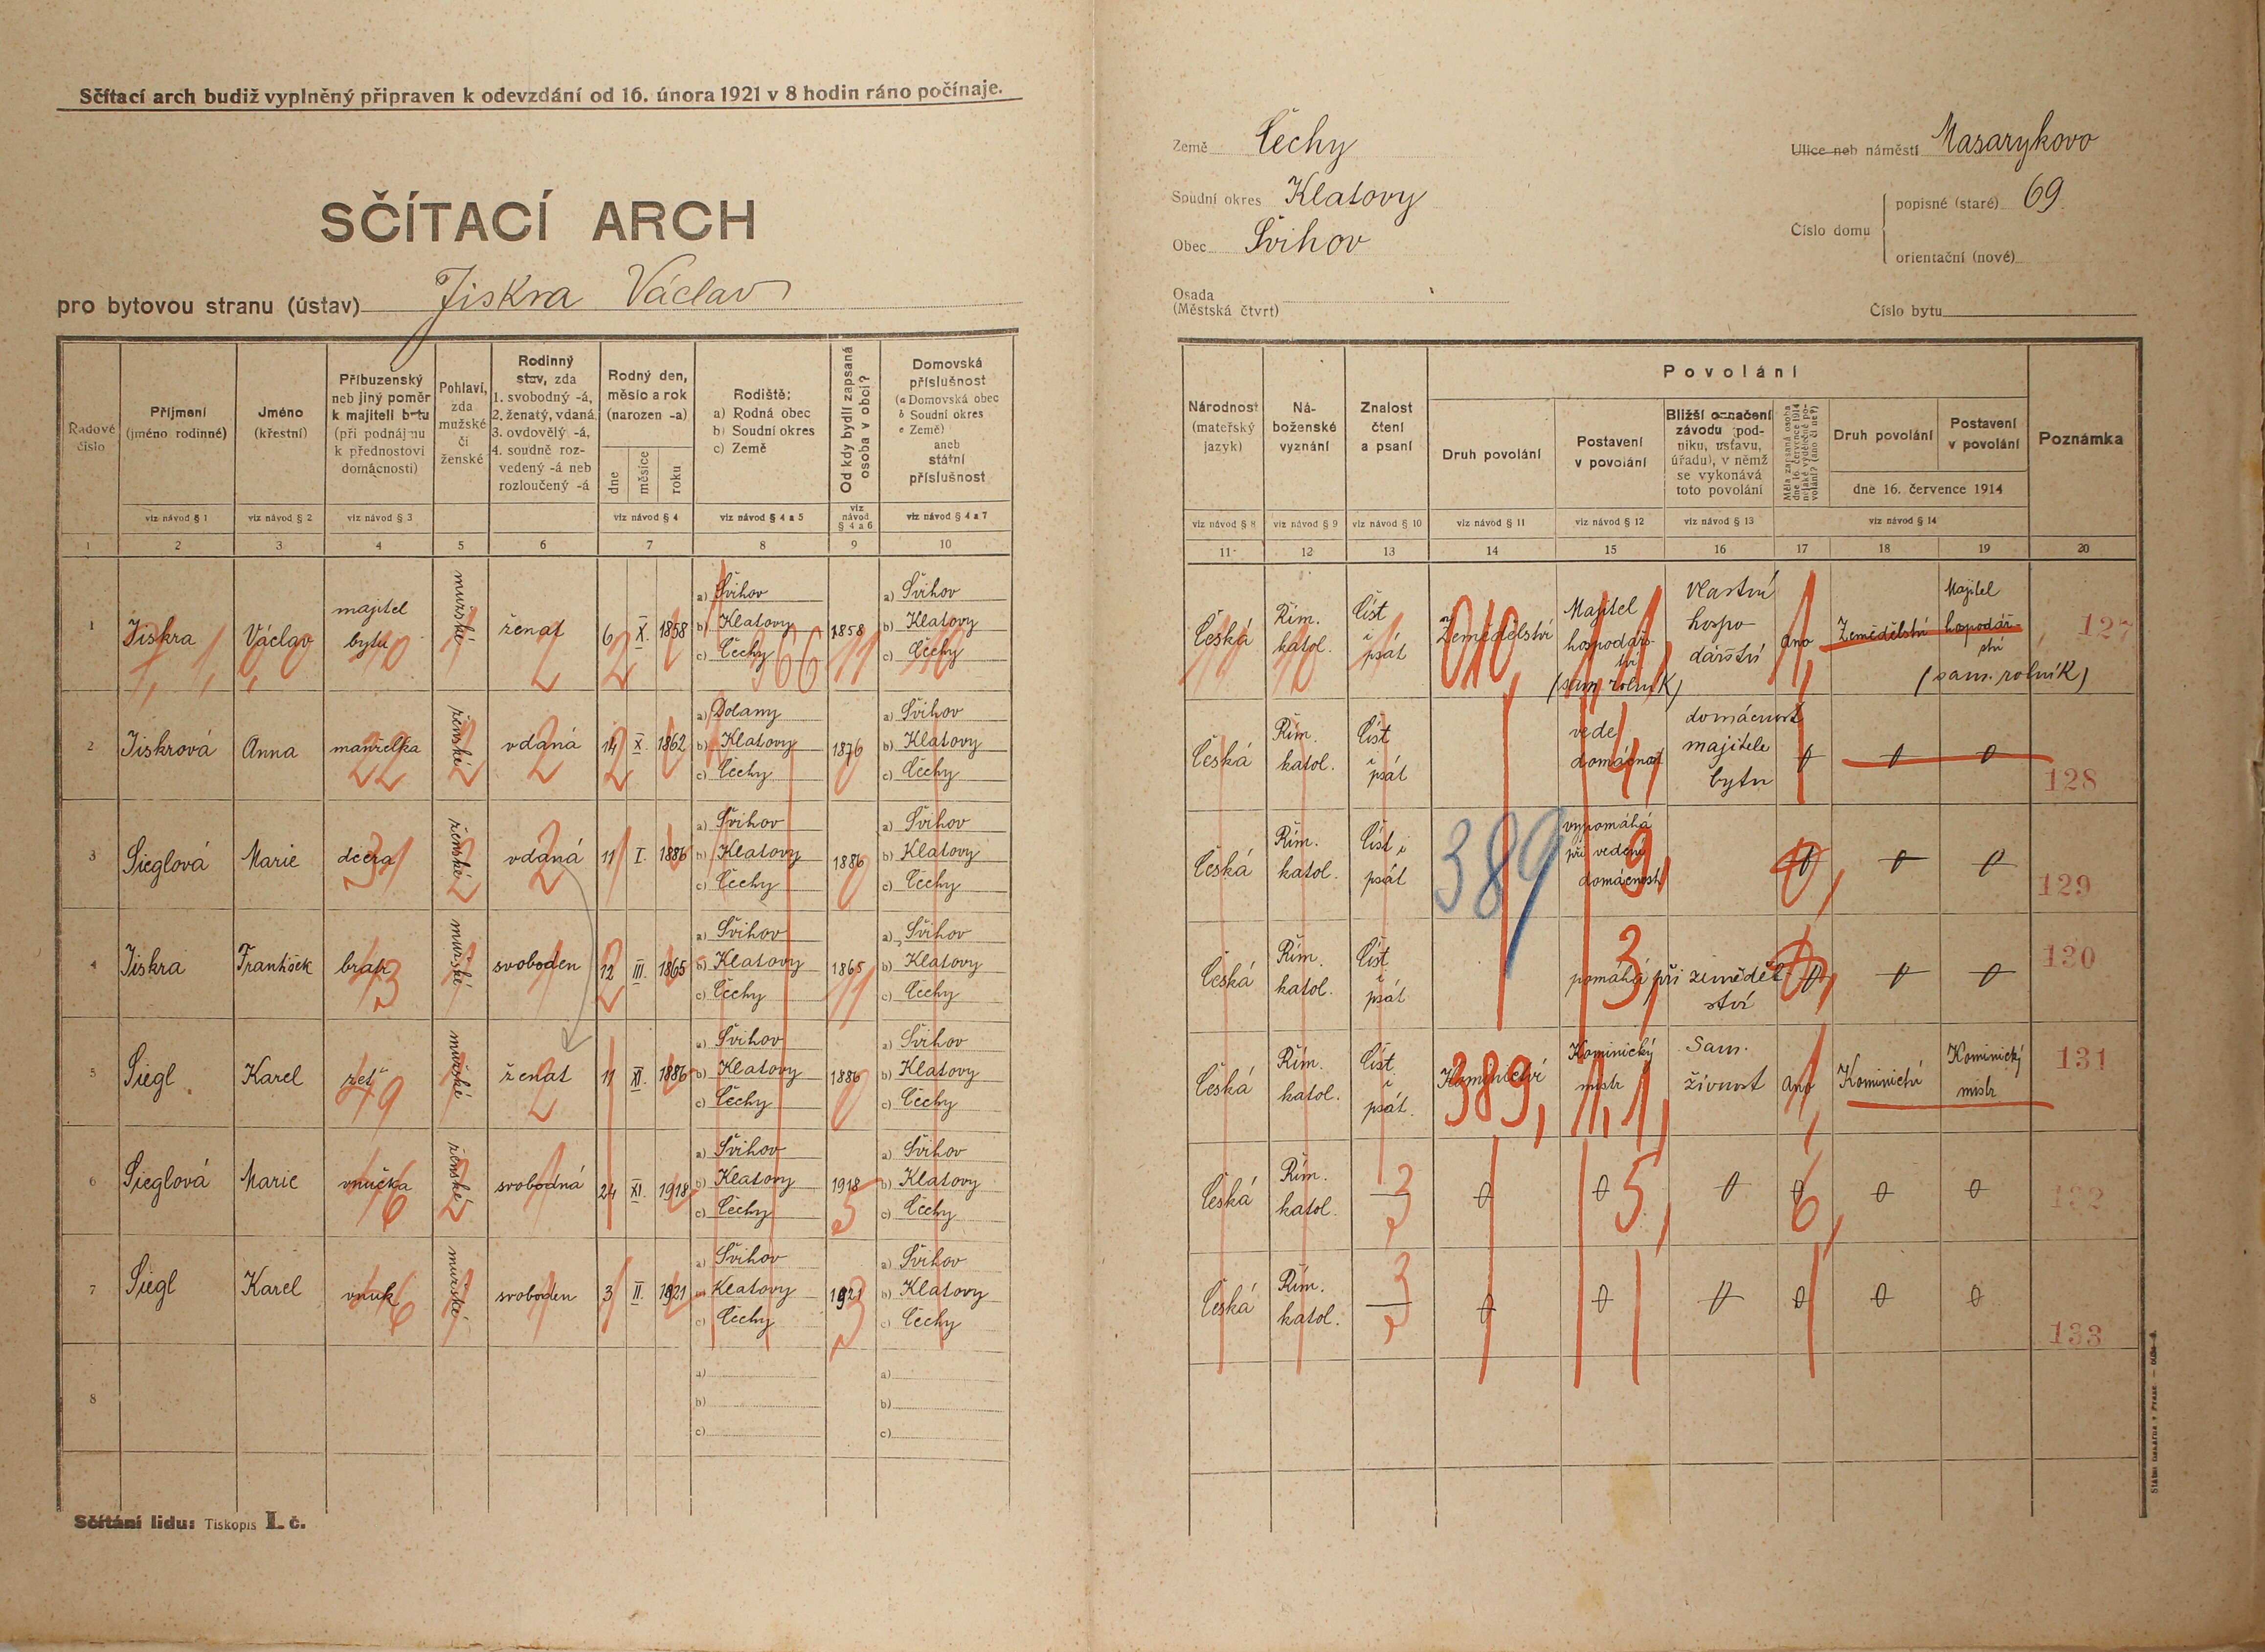 Sčítací arch budiž vyplněný připraven k odevzdání od 16. února 1921 v 8 hodin ráno počínaje.
SČÍTACÍ ARCH
pro bytovou stranu (ústav) Jiskra Václav
Země Čechy
Soudní okres Klatovy
Obec Švihov
Osada
(Městská čtvrť)
Ulice neb náměstí Masarykovo
Číslo domu
popisné (staré) 69
orientační (nové)
Číslo bytu
Řadové číslo
Příjmení (jméno rodinné)
Jméno (křestní)
Příbuzenský neb jiný poměr k majiteli bytu (při podnájmu k přednostovi domácnosti)
Pohlaví, zda mužské či ženské
Rodinný stav, zda 1. svobodný -á, 2. ženatý, vdaná, 3. ovdovělý -á, 4. soudně rozvedený -á neb rozloučený -á
Rodný den, měsíc a rok (narozen -a)
dne
měsíce
roku
Rodiště:
a) Rodná obec
b) Soudní okres
c) Země
Od kdy bydlí zapsaná osoba v obci?
Domovská příslušnost (a Domovská obec b Soudní okres c Země) aneb státní příslušnost
viz návod § 1
viz návod § 2
viz návod § 3
viz návod § 4
viz návod § 4 a 5
viz návod § 4 a 6
viz návod § 4 a 7
1 2 3 4 5 6 7 8 9 10
1 Jiskra Václav majitel bytu mužské ženat 6 X. 1858 a) Švihov b) Klatovy c) Čechy 1858 a) Švihov b) Klatovy c) Čechy
2 Jiskrová Anna manželka ženské vdaná 14 X. 1862 a) Dolany b) Klatovy c) Čechy 1876 a) Švihov b) Klatovy c) Čechy
3 Sieglová Marie dcera ženské vdaná 11 I. 1886 a) Švihov b) Klatovy c) Čechy 1886 a) Švihov b) Klatovy c) Čechy
4 Jiskra František bratr mužské svoboden 12 III. 1865 a) Švihov b) Klatovy c) Čechy 1865 a) Švihov b) Klatovy c) Čechy
5 Siegl Karel zeť mužské ženat 11 XI. 1886 a) Švihov b) Klatovy c) Čechy 1886 a) Švihov b) Klatovy c) Čechy
6 Sieglová Marie vnučka ženské svobodná 24 XI. 1918 a) Švihov b) Klatovy c) Čechy 1918 a) Švihov b) Klatovy c) Čechy
7 Siegl Karel vnuk mužské svoboden 3 II. 1921 a) Švihov b) Klatovy c) Čechy 1921 a) Švihov b) Klatovy c) Čechy
8 a) b) c) a) b) c)
Sčítání lidu: Tiskopis I. č.
Národnost (mateřský jazyk)
Náboženské vyznání
Znalost čtení a psaní
Povolání
Druh povolání
Postavení v povolání
Bližší označení závodu (podniku, ústavu, úřadu), v němž se vykonává toto povolání
Měla zapsaná osoba dne 16. července 1914 nějaké výdělečné povolání? (ano či ne?)
Druh povolání
Postavení v povolání
dne 16. července 1914
Poznámka
viz návod § 8
viz návod § 9
viz návod § 10
viz návod § 11
viz návod § 12
viz návod § 13
viz návod § 14
11 12 13 14 15 16 17 18 19 20
Česká Řím. katol. číst i psát Zemědělství Majitel hospodářství (sam. rolník) vlastní hospodářství ano Zemědělství Majitel hospodářství (sam. rolník) 127
Česká Řím. katol. číst i psát vede domácnost domácnost majitele bytu 0 0 0 128
Česká Řím. katol. číst i psát 389 vypomáhá při vedení domácnosti 0 0 0 129
Česká Řím. katol. číst i psát pomáhá při zemědělství 0 0 0 130
Česká Řím. katol. číst i psát. Kominictví Kominický mistr Sam. živnost ano Kominictví Kominický mistr 131
Česká Řím. katol. 0 0 0 0 0 0 132
Česká Řím. katol. 0 0 0 0 0 0 133